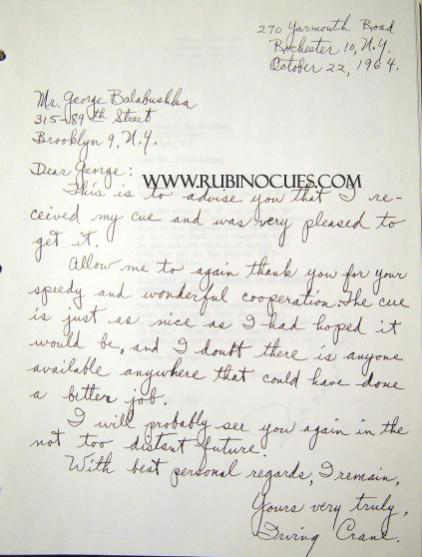 270 Yarmouth Road
Rochester 10, N.Y.
October 22, 1964.
Mr. George Balabushka
315-89th Street
Brooklyn 9, N.Y.
Dear George:
WWW.RUBINOCUES.COM
This is to advise you that I re-
ceived my cue and was very pleased to
get it.
Allow me to again thank you for your
speedy and wonderful cooperation. The cue
is just as nice as I had hoped it
would be, and I doubt there is anyone
available anywhere that could have done
a better job.
I will probably see you again in the
not too distant future.
With best personal regards, I remain,
Yours very truly,
Irving Crane.